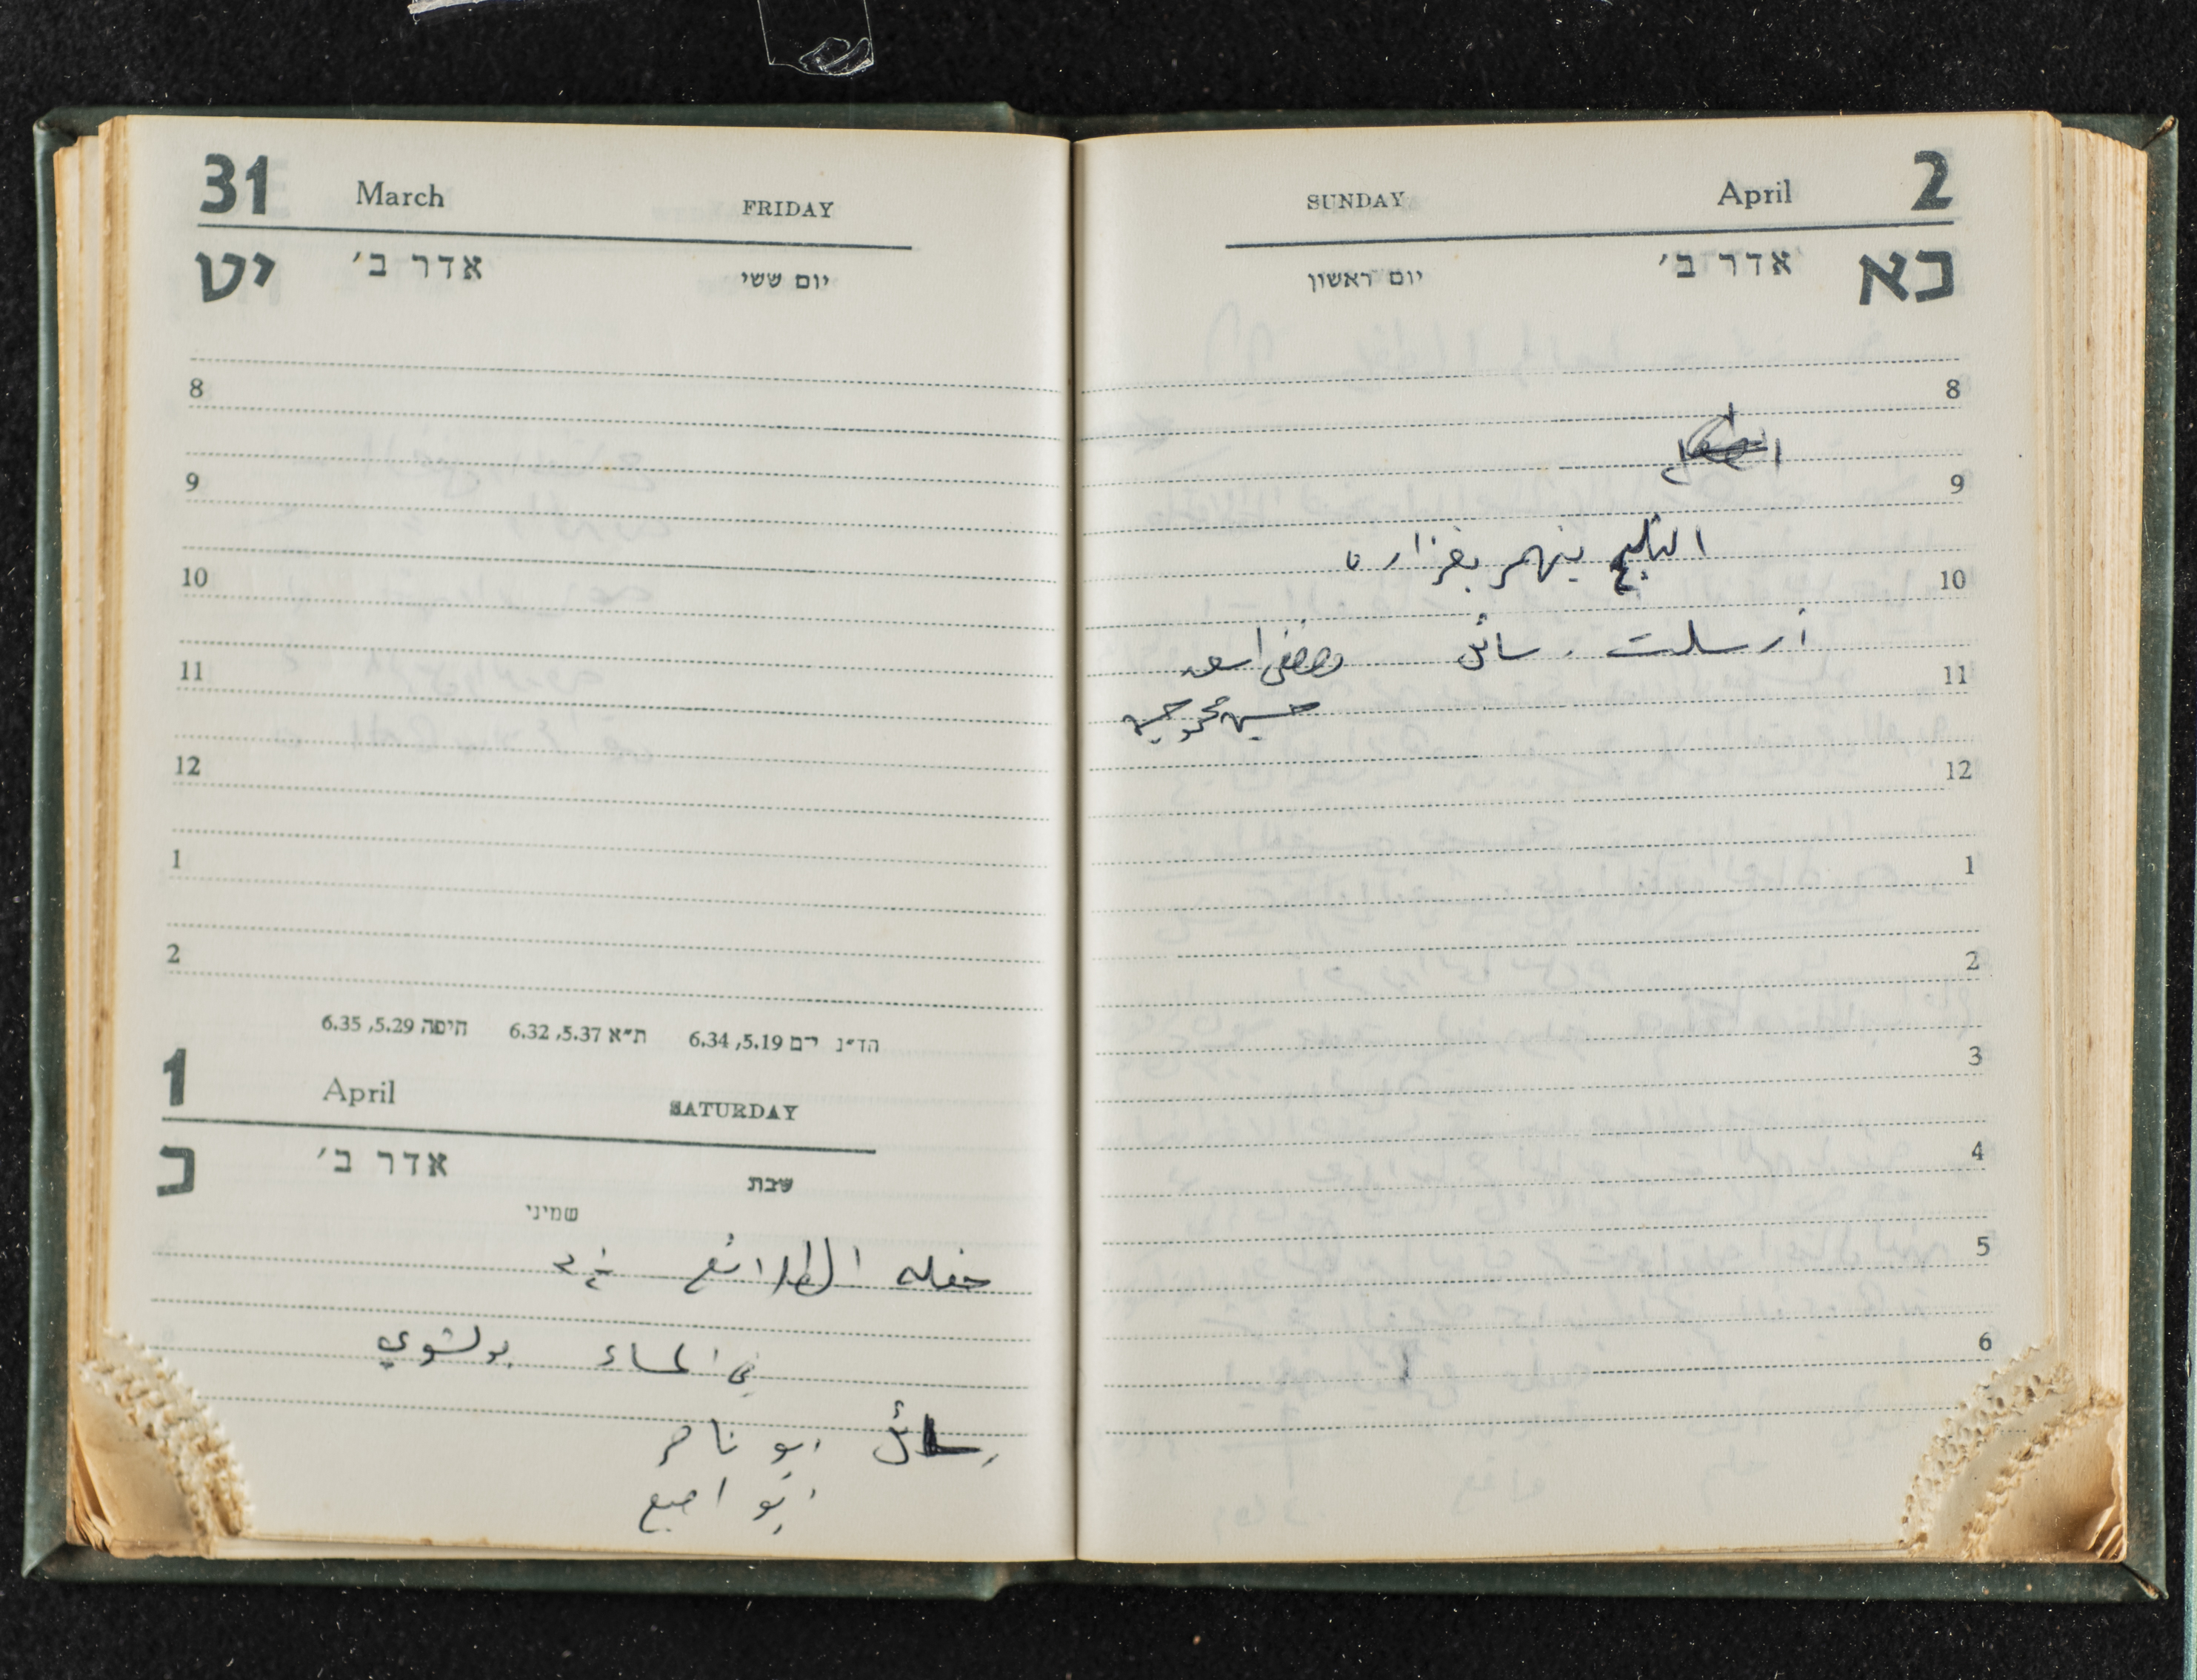 31 March FRIDAY
יט אדר ב׳ יום ששי
8
9
10
11
12
1
2
הד״נ ים 5.19, 6.34 ת״א 5.37, 6.32 חיפה 5.29, 6.35
1 April SATURDAY
כ אדר ב׳ שבת
שמיני
حفله الطلائع
في المساء
رسائل ابو ناصر
ابو
SUNDAY April 2
כא אדר ב׳ יום ראשון
8
9
الثلج ينهمر بغزاره
10
أرسلت رسائل مصطفى اسعد
11
حسين
12
1
2
3
4
5
6